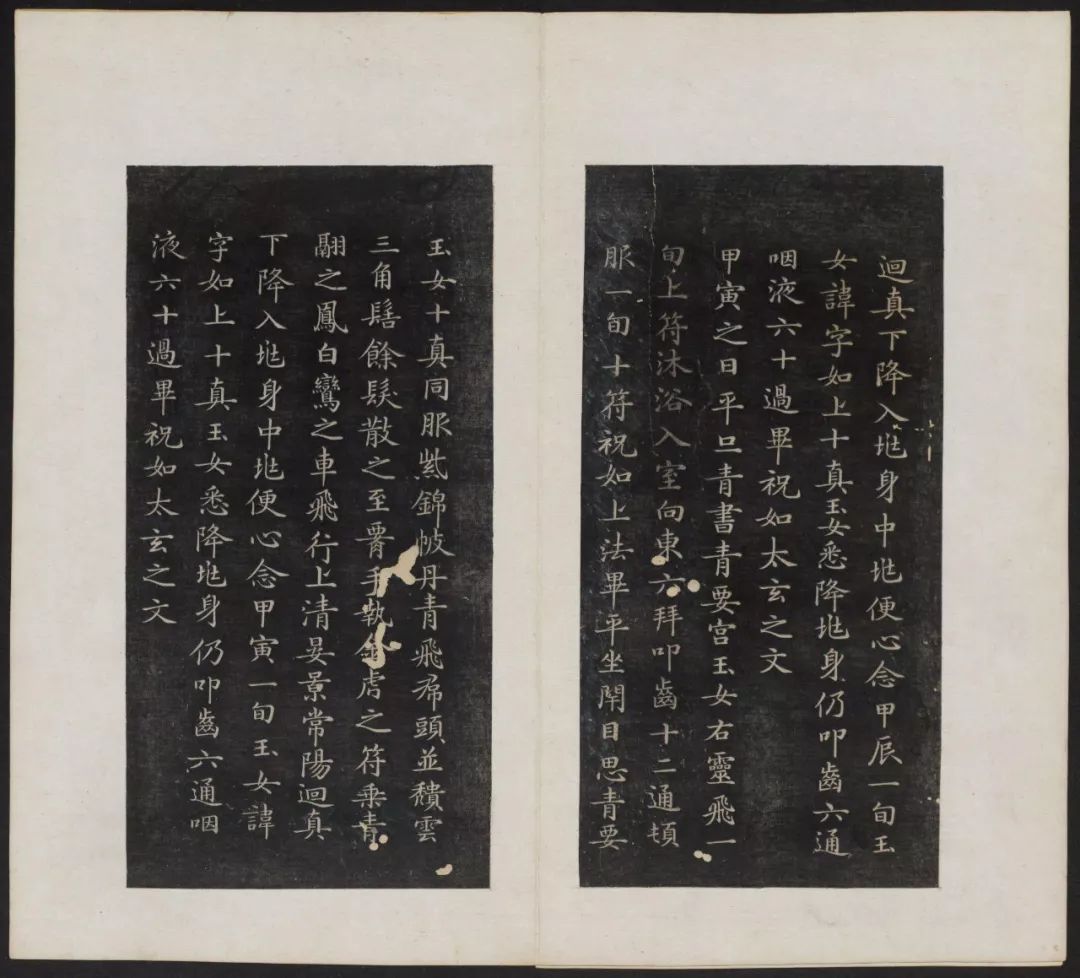 迴真下降入兆身中兆便心念甲辰一旬玉
女諱字如上十真玉女悉降兆身仍叩齒六通
咽液六十過畢祝如太玄之文
甲寅之日平旦青書青要宮玉女右靈飛一
旬上符沐浴入室向東六拜叩齒十二通頓
服一旬十符祝如上法畢平坐閉目思青要
玉女十真同服紫錦帔丹青飛帬頭並穨雲
三角髻餘髮散之至腰手執金虎之符乘青
翮之鳳白鸞之車飛行上清晏景常陽迴真
下降入兆身中兆便心念甲寅一旬玉女諱
字如上十真玉女悉降兆身仍叩齒六通咽
液六十過畢祝如太玄之文